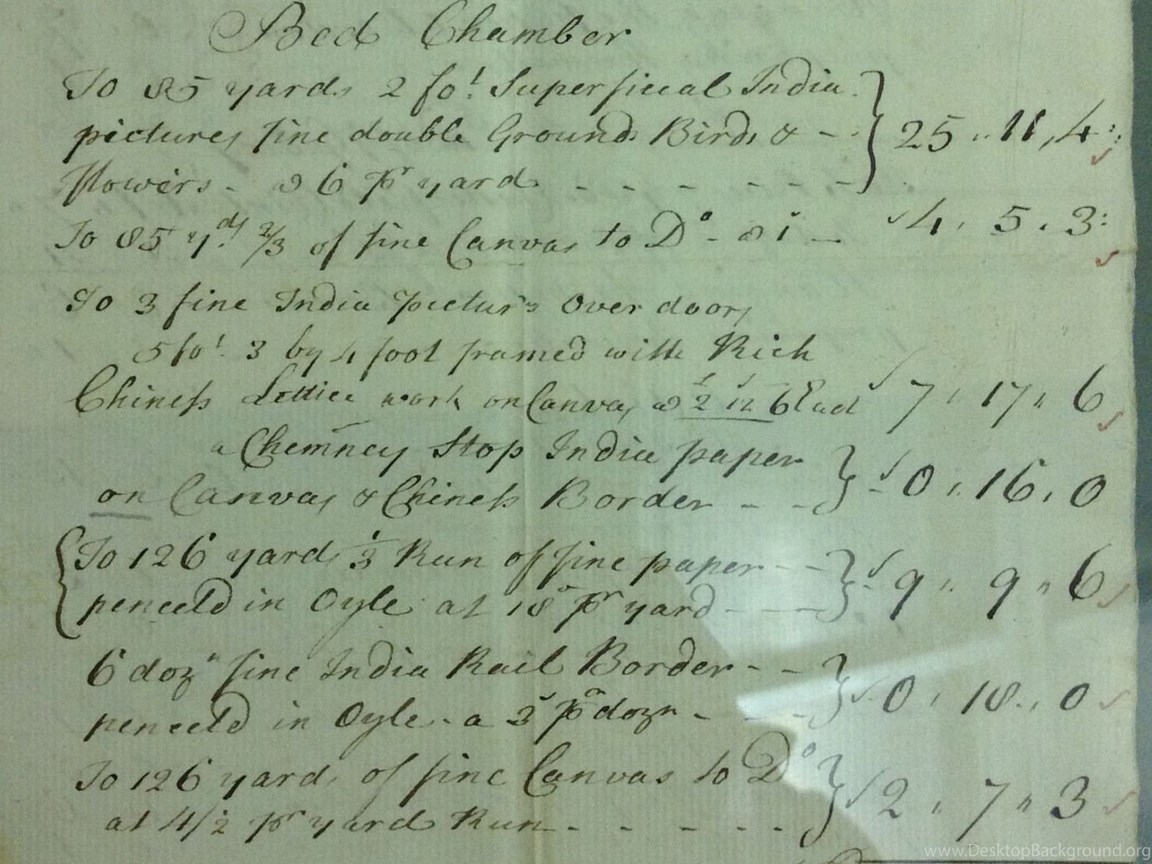 Bed Chamber
To 85 yards 2 fot Superficial India
pictures fine double Ground Birds & - - } 25 " 11 " 4
flowers - @ 6 pr yard - - - - - -
To 85 yds 2/3 of fine Canvas to Do - @ 1s - 4 " 5 " 3
To 3 fine India Picturs Over doors
5 fot 3 by 4 foot framed with Rich
Chiness Lettice work on Canvas @ 2 12 6 Each 7 " 17 " 6
a Chemney Stop India paper
on Canvas & Chiness Border - - - } 0 " 16 " 0
{ To 126 yards 1/3 Run of fine paper - -
penceld in Oyle at 18d pr yard - - } 9 " 9 " 6
6 dozn fine India Rail Border - -
penceld in Oyle - a 3s pr dozn - - - } 0 " 18 " 0
To 126 yards of fine Canvas to Do
at 4/2 pr yard Run - - - - - } 2 " 7 " 3
www.DesktopBackground.org